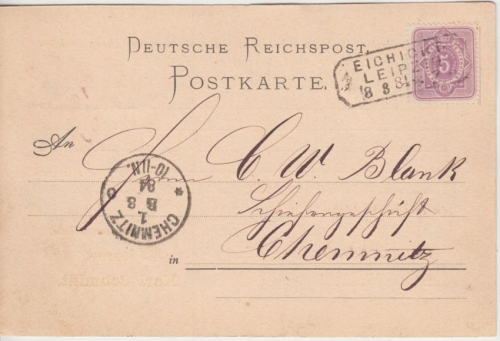 DEUTSCHE REICHSPOST.
POSTKARTE.
EICHICHT
LEIPZIG
8 3 84
5
An
Herrn C. W. Blank
Schiefergeschäft
in Chemnitz
CHEMNITZ
1.
8 3
84
10-11N.